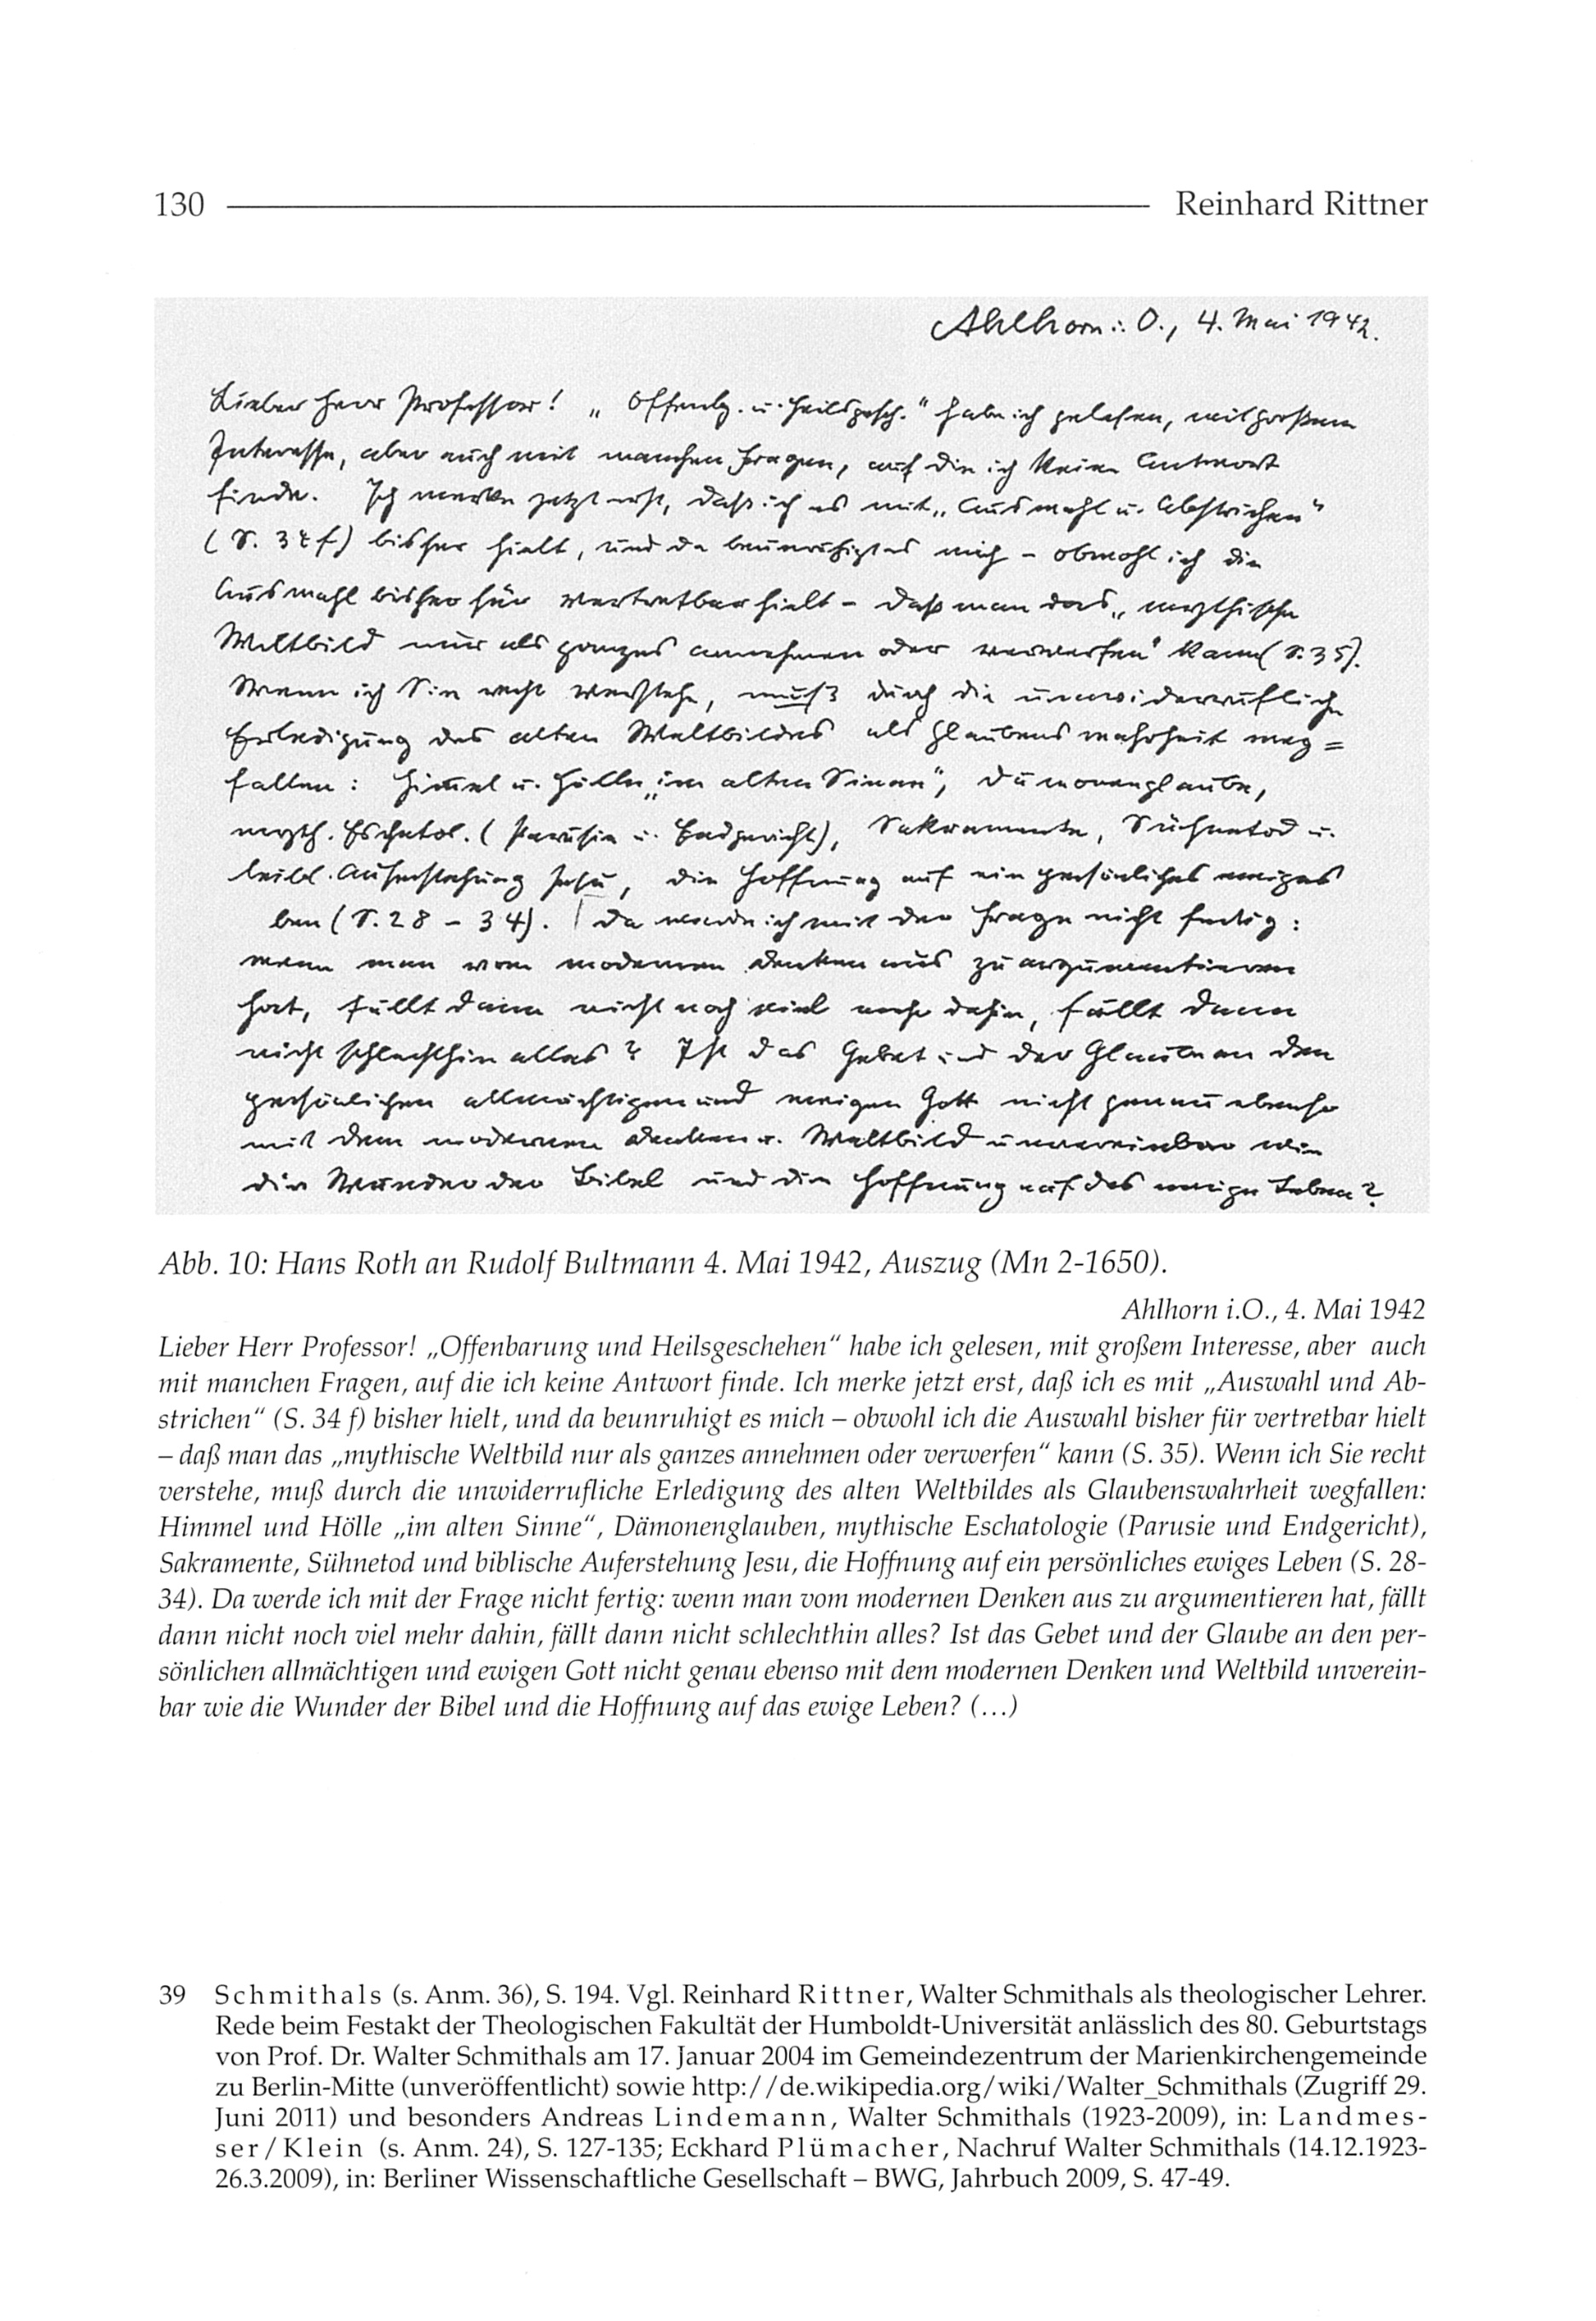 130 Reinhard Rittner
Ahlhorn i. O., 4. Mai 1942.
Lieber Herr Professor! „Offenbg. u. Heilsgesch.“ habe ich gelesen, mit großem
Interesse, aber auch mit manchen Fragen, auf die ich keine Antwort
finde. Ich merke jetzt erst, daß ich es mit „Auswahl u. Abstrichen“
(S. 34 f) bisher hielt, und da beunruhigt es mich – obwohl ich die
Auswahl bisher für vertretbar hielt – daß man das „mythische
Weltbild nur als ganzes annehmen oder verwerfen“ kann (S. 35).
Wenn ich Sie recht verstehe, muß durch die unwiderrufliche
Erledigung des alten Weltbildes als Glaubenswahrheit weg=
fallen: Himmel u. Hölle „im alten Sinne“, Dämonenglaube,
myth. Eschatol. (Parusie u. Endgericht), Sakramente, Sühnetod u.
leibl. Auferstehung Jesu, die Hoffnung auf ein persönliches ewiges
ben (S. 28 – 34). Da werde ich mit der Frage nicht fertig:
wenn man vom modernen Denken aus zu argumentieren
hat, fällt dann nicht noch viel mehr dahin, fällt dann
nicht schlechthin alles? Ist das Gebet und der Glaube an den
persönlichen allmächtigen und ewigen Gott nicht genau ebenso
mit dem modernen Denken u. Weltbild unvereinbar wie
die Wunder der Bibel und die Hoffnung auf das ewige Leben?
Abb. 10: Hans Roth an Rudolf Bultmann 4. Mai 1942, Auszug (Mn 2-1650).
Ahlhorn i.O., 4. Mai 1942
Lieber Herr Professor! „Offenbarung und Heilsgeschehen“ habe ich gelesen, mit großem Interesse, aber auch
mit manchen Fragen, auf die ich keine Antwort finde. Ich merke jetzt erst, daß ich es mit „Auswahl und Ab-
strichen“ (S. 34 f) bisher hielt, und da beunruhigt es mich – obwohl ich die Auswahl bisher für vertretbar hielt
– daß man das „mythische Weltbild nur als ganzes annehmen oder verwerfen“ kann (S. 35). Wenn ich Sie recht
verstehe, muß durch die unwiderrufliche Erledigung des alten Weltbildes als Glaubenswahrheit wegfallen:
Himmel und Hölle „im alten Sinne“, Dämonenglauben, mythische Eschatologie (Parusie und Endgericht),
Sakramente, Sühnetod und biblische Auferstehung Jesu, die Hoffnung auf ein persönliches ewiges Leben (S. 28-
34). Da werde ich mit der Frage nicht fertig: wenn man vom modernen Denken aus zu argumentieren hat, fällt
dann nicht noch viel mehr dahin, fällt dann nicht schlechthin alles? Ist das Gebet und der Glaube an den per-
sönlichen allmächtigen und ewigen Gott nicht genau ebenso mit dem modernen Denken und Weltbild unverein-
bar wie die Wunder der Bibel und die Hoffnung auf das ewige Leben? (…)
39 Schmithals (s. Anm. 36), S. 194. Vgl. Reinhard Rittner, Walter Schmithals als theologischer Lehrer.
Rede beim Festakt der Theologischen Fakultät der Humboldt-Universität anlässlich des 80. Geburtstags
von Prof. Dr. Walter Schmithals am 17. Januar 2004 im Gemeindezentrum der Marienkirchengemeinde
zu Berlin-Mitte (unveröffentlicht) sowie http://de.wikipedia.org/wiki/Walter_Schmithals (Zugriff 29.
Juni 2011) und besonders Andreas Lindemann, Walter Schmithals (1923-2009), in: Landmes-
ser/Klein (s. Anm. 24), S. 127-135; Eckhard Plümacher, Nachruf Walter Schmithals (14.12.1923-
26.3.2009), in: Berliner Wissenschaftliche Gesellschaft – BWG, Jahrbuch 2009, S. 47-49.